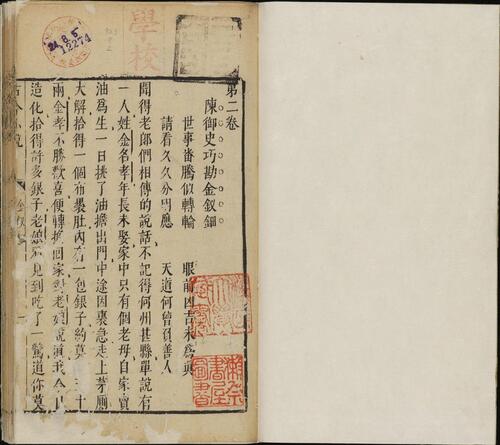 第二卷
陳御史巧勘金釵鈿
世事番騰似轉輪　眼前凶吉未為真
請看久久分明應　天道何曾負善人
聞得老郎們相傳的說話不記得何州甚縣單說有
一人姓金名孝年長未娶家中只有個老母自家賣
油為生一日挑了油擔出門中途因裏急走上茅廁
大解拾得一個布裹肚內有一包銀子約莫三十
兩金孝不勝歡喜便轉擔回家對老娘說道我今日
造化拾得許多銀子老娘看見到吃了一驚道你莫
古今小說
學校
24 8 5
12274
獺祭書屋圖書